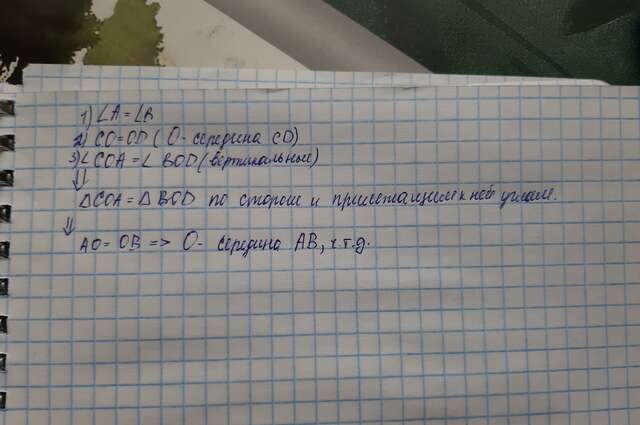 1) ∠A = ∠B
2) CO = OD ( O - середина CD)
3) ∠COA = ∠ BOD (вертикальные)
⇓
△COA = △BOD по стороне и прилежащим к ней углам.
⇓
AO = OB => O - середина AB, ч.т.д.